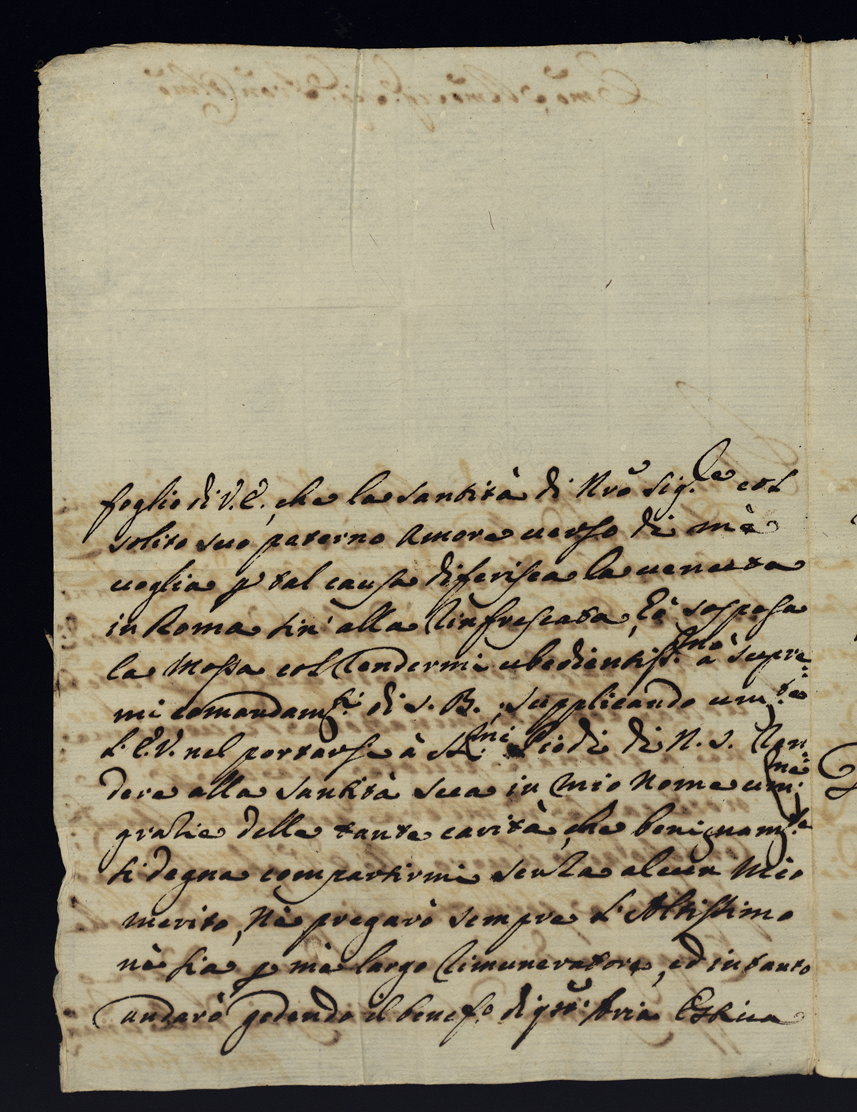 foglio di V. E., che la santità di Nrõ Sig.re col
solito suo paterno Amore uerso di mè
uoglia p tal causa diferisca la uenuta
in Roma sin' alla Rinfrescata, hò sospesa
la Mossa col Rendermi ubedientiss.mo à supre=
mi comandam.ti di S. B., supplicando um.te
L'E.V. nel portarsi à SS.mi Piedi di N. S. Ren=
dere alla Santità Sua in mio Nome um.me
gratie delle tante carità, che benignam.te
si degna compartirmi senza alcun Mio
merito, Nè pregarò sempre L'Altissimo
nè sia p mè largo Rimuneratore, ed intanto
andarò godendo il benef.o di qsta Aria Estiua